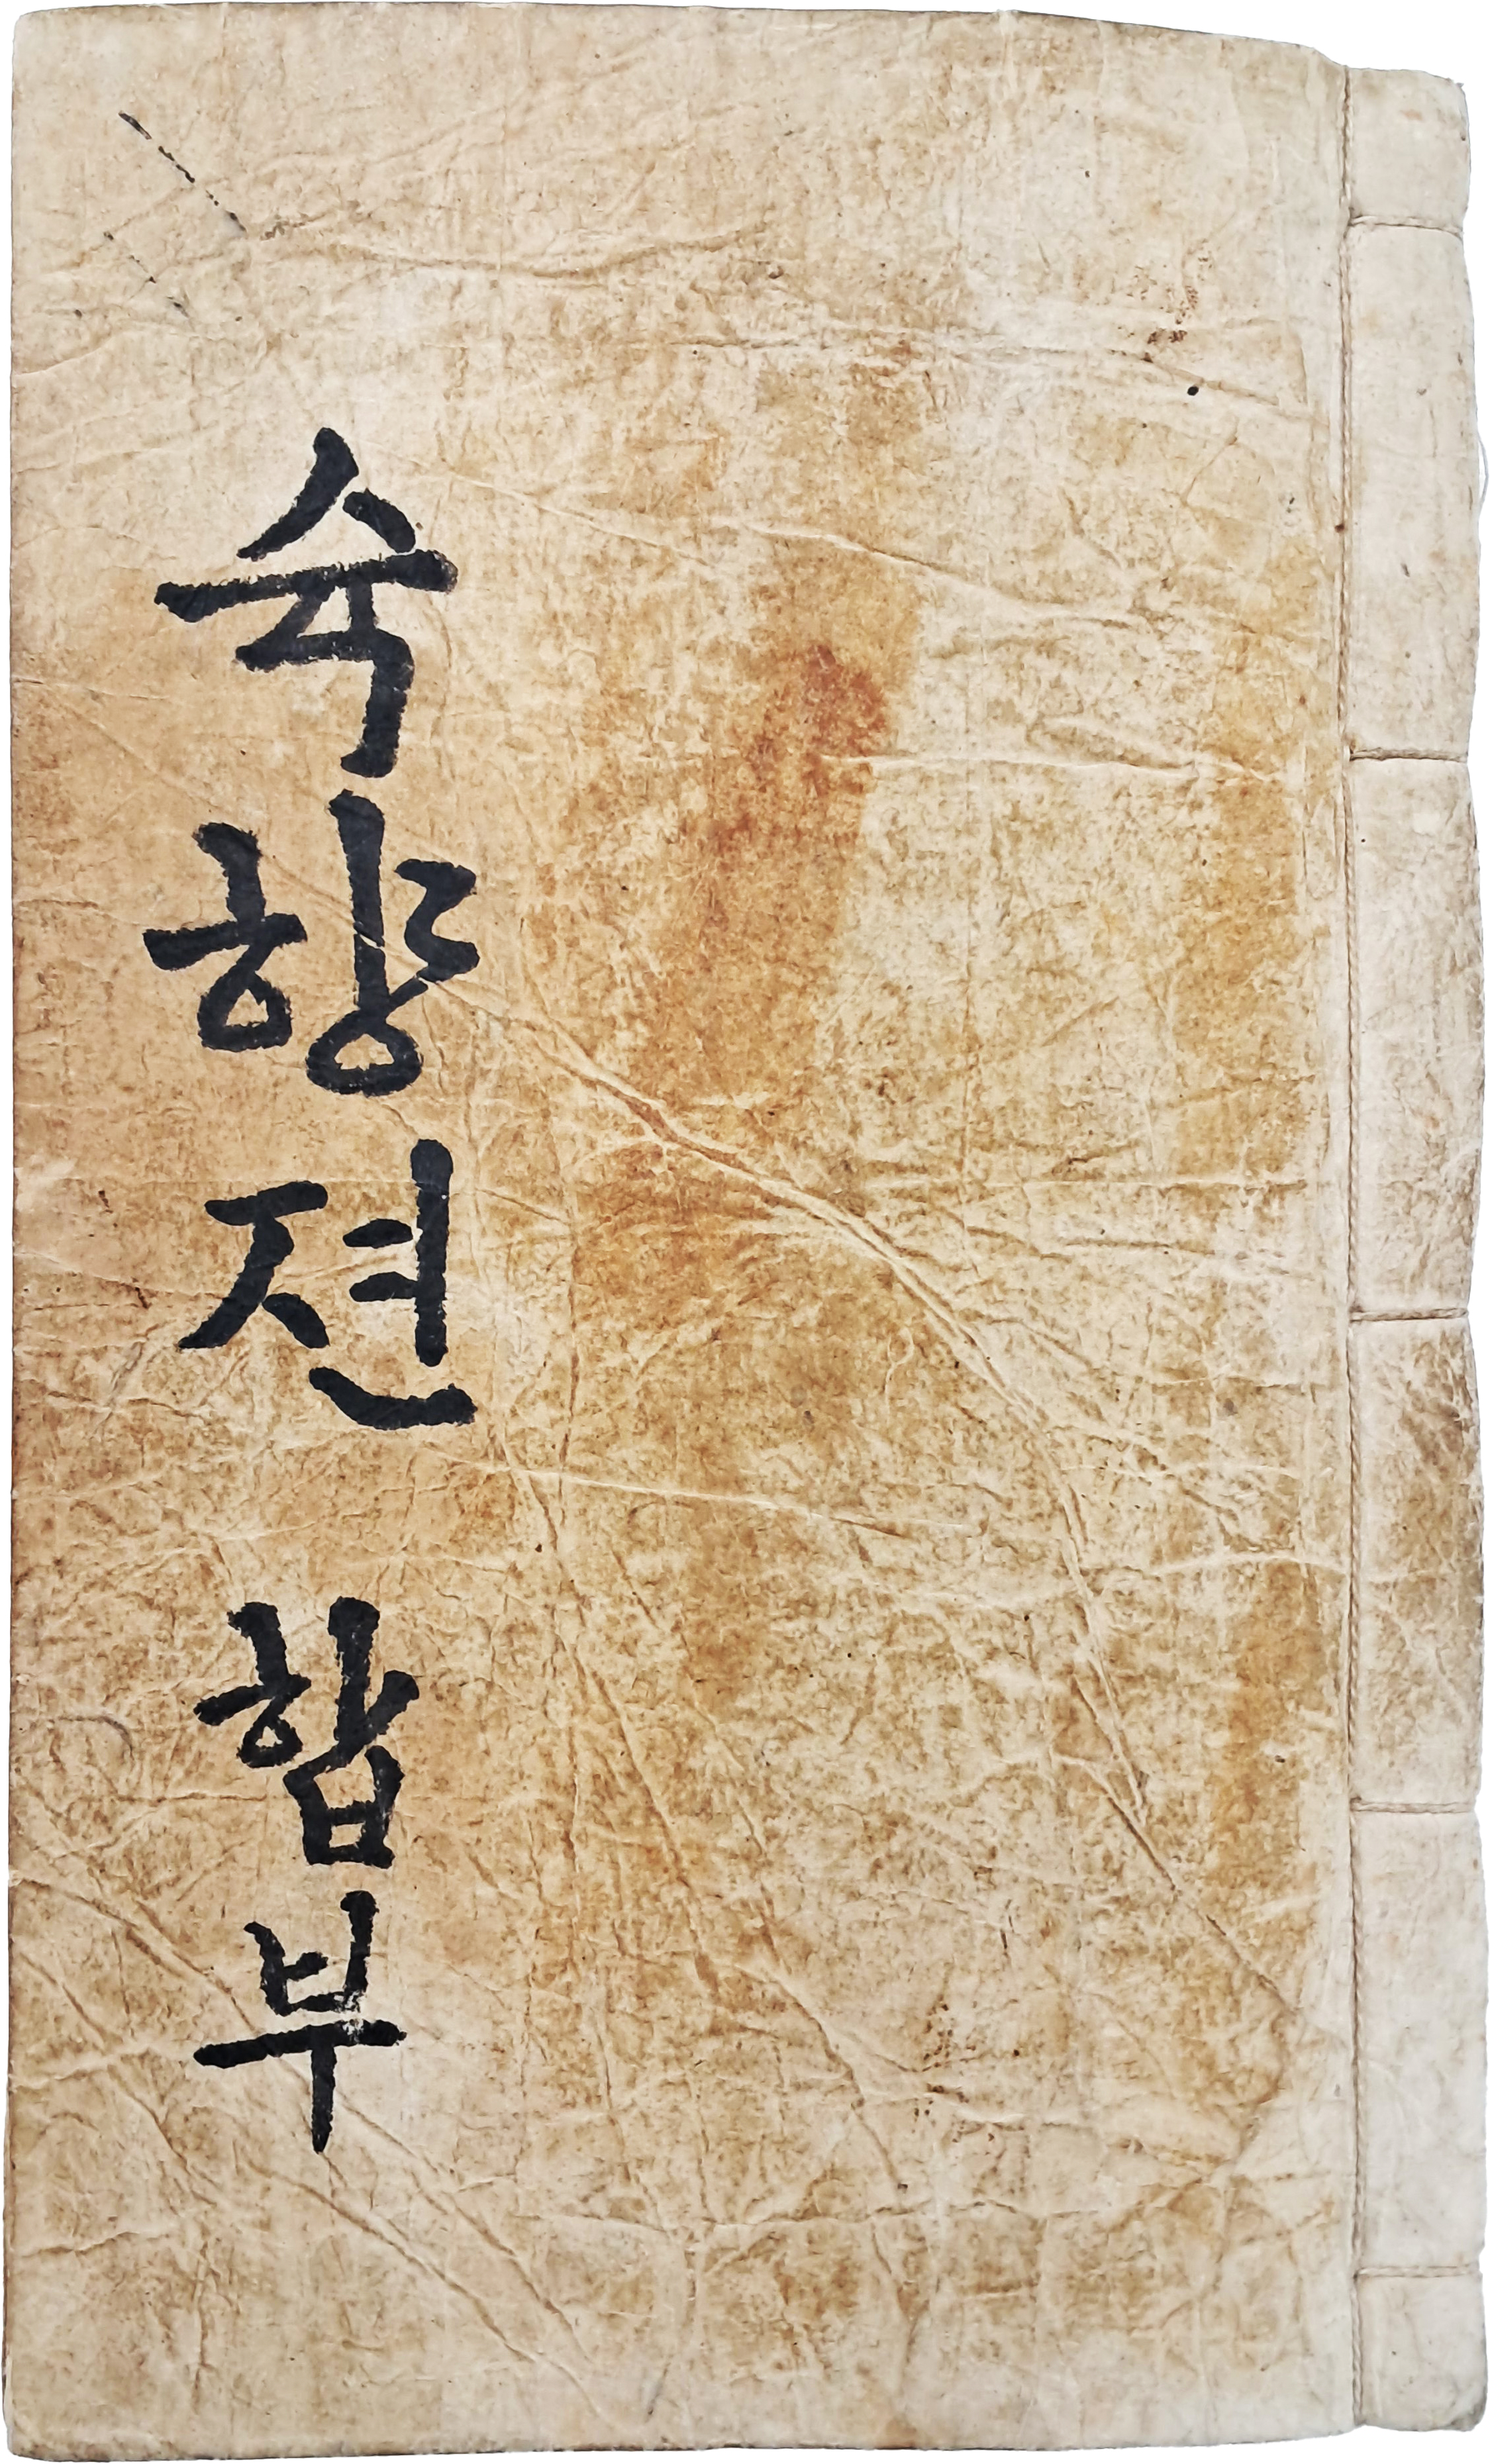 숙향젼 합부